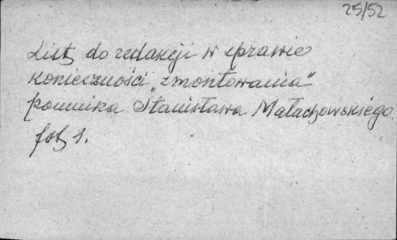 25/52
List do redakcji w sprawie
konieczności „zmontowania”
pomnika Stanisława Małachowskiego.
fot 1.